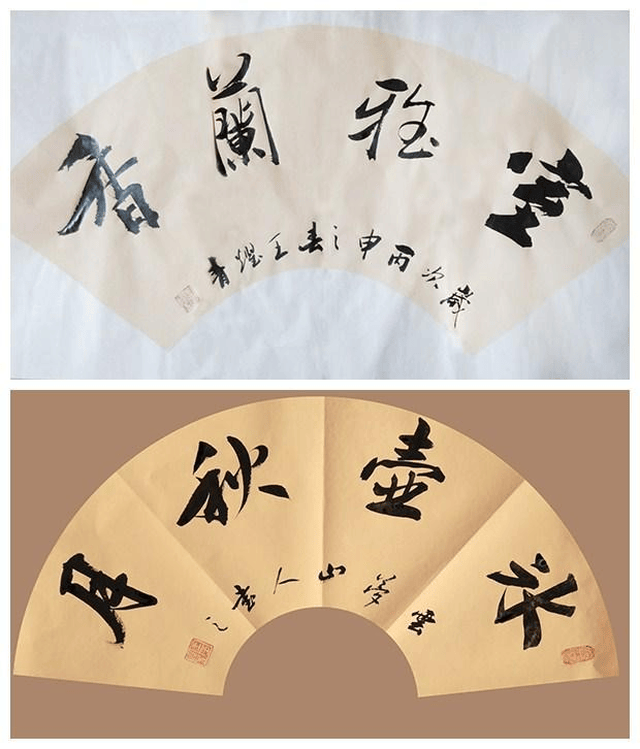 室雅蘭香
歲次丙申之春王
冰壺秋月
雲夢山人